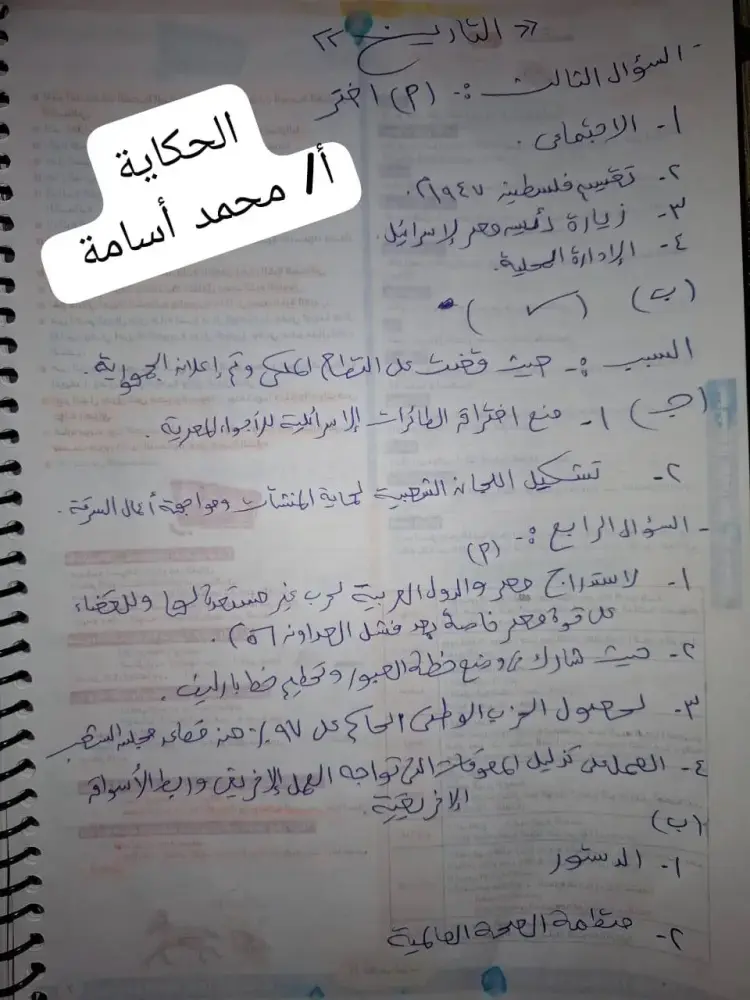 « التاريخ »
- السؤال الثالث :- (م) اختر
الحكاية
أ/ محمد أسامة
١- الاجتماعى .
٢- تقسيم فلسطين ١٩٤٧م.
٣- زيارة رئيس مصر لإسرائيل.
٤- الإدارة المحلية.
(ب) (✓)
السبب :- حيث قضت على النظام الملكى وتم إعلان الجمهورية .
(جـ) ١- منع اختراق الطائرات الإسرائيلية للأجواء المصرية .
٢- تشكيل اللجان الشعبية لحماية المنشآت ومواجهة أعمال السرقة .
- السؤال الرابع :- (م)
١- لاستدراج مصر والدول العربية لحرب غير مستعدة لها وللقضاء
على قوة مصر خاصة بعد فشل العدوان ٥٦م .
٢- حيث شارك فى وضع خطة العبور وتحطيم خط بارليف .
٣- لحصول الحزب الوطنى الحاكم على ٩٧٪ من مقاعد مجلس الشعب
٤- العمل على تذليل المعوقات التى تواجه العمل الإفريقى وربط الأسواق
الإفريقية .
(ب)
١- الدستور
٢- منظمة الصحة العالمية